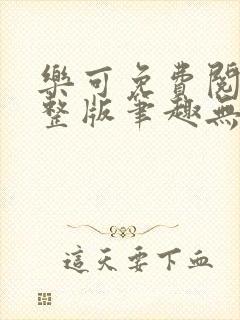 樂可免費閱
整版筆趣無
這天要下血